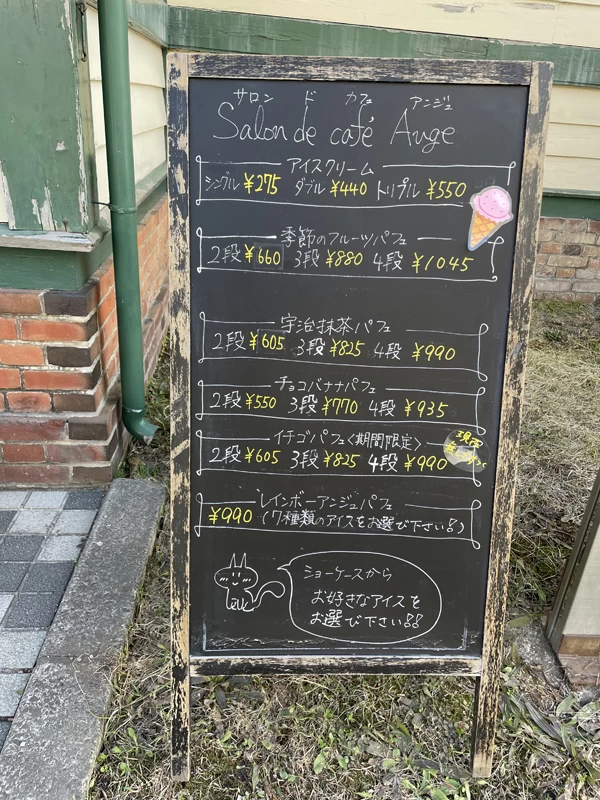 サロン ド カフェ アンジュ
Salon de café Ange
アイスクリーム
シングル ¥275 ダブル ¥440 トリプル ¥550
季節のフルーツパフェ
2段 ¥660 3段 ¥880 4段 ¥1045
宇治抹茶パフェ
2段 ¥605 3段 ¥825 4段 ¥990
チョコバナナパフェ
2段 ¥550 3段 ¥770 4段 ¥935
イチゴパフェ〈期間限定〉
2段 ¥605 3段 ¥825 4段 ¥990
レインボーアンジュパフェ
¥990 (7種類のアイスをお選び下さい!)
ショーケースから
お好きなアイスを
お選び下さい!!